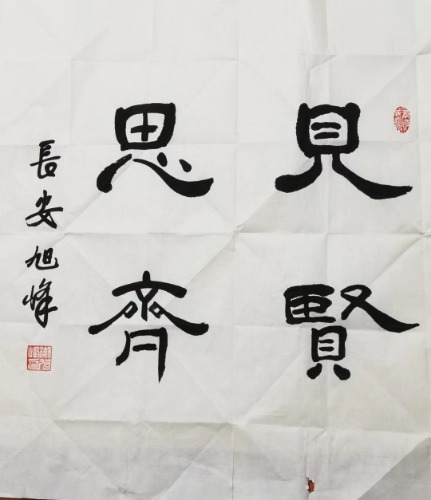 見賢
思齊
長安旭峰